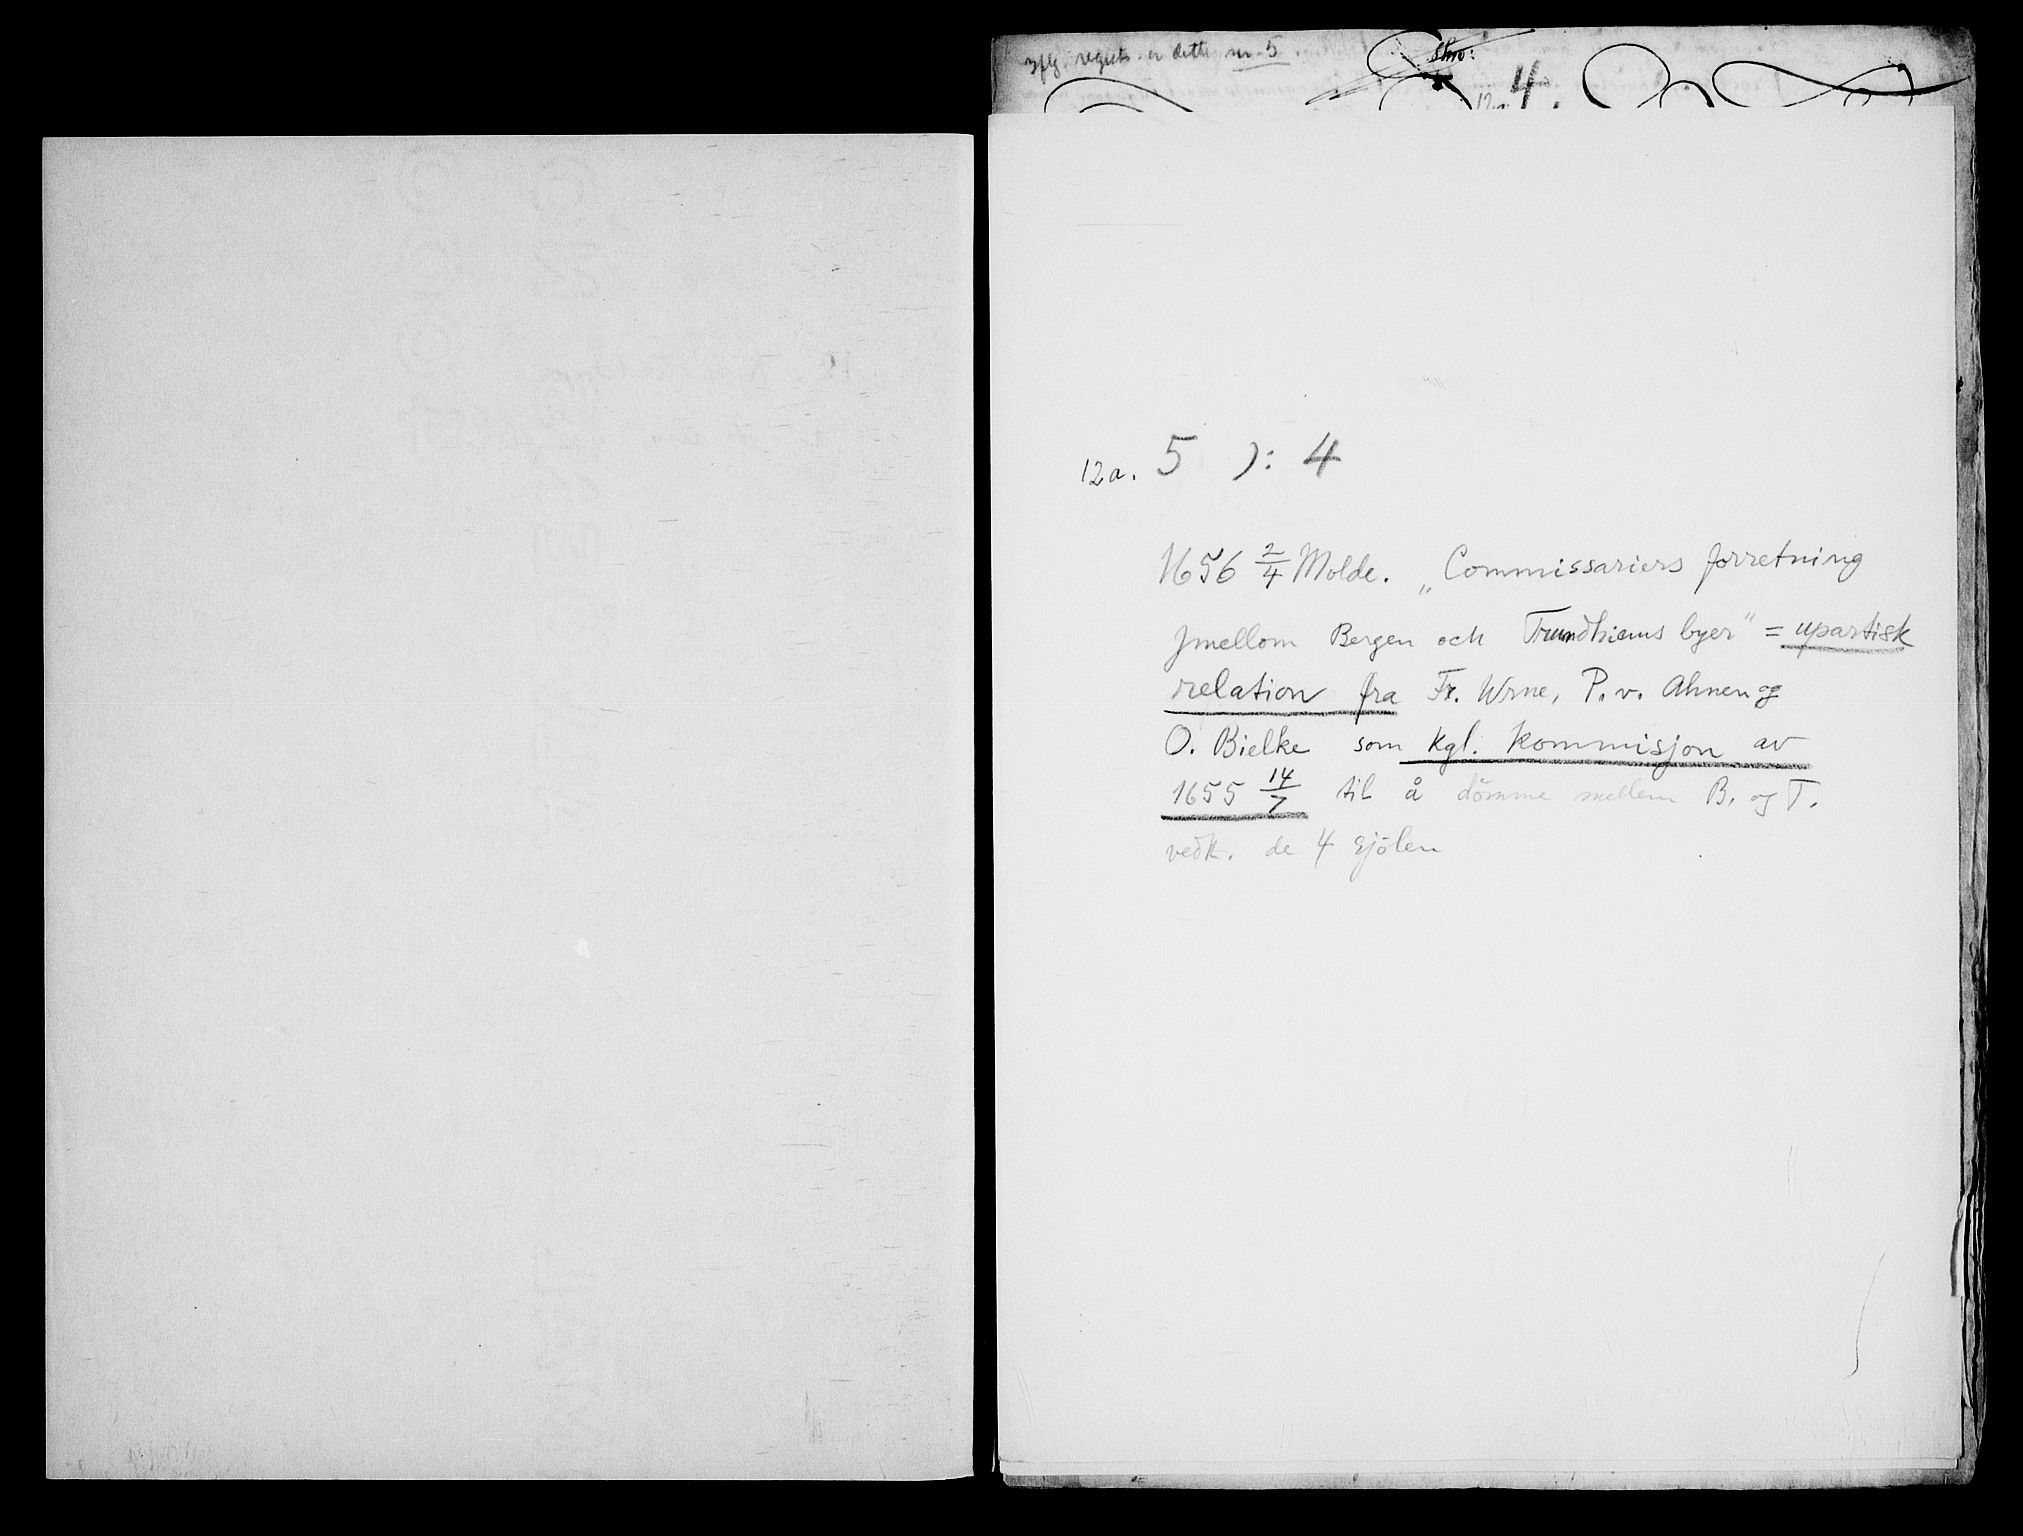 iflg. registr. er dette nr 5
12a. 4.
12a. 5 ɔ: 4
1656 2/4 Molde. „Commissariers forretning
Jmellom Bergen och Trundhiems byer" = upartisk
relation fra Fr. Urne, P. v. Ahnen og
O. Bielke som kgl. kommisjon av
1655 14/7 til å dömme mellem B. og T.
vedk. de 4 sjölen